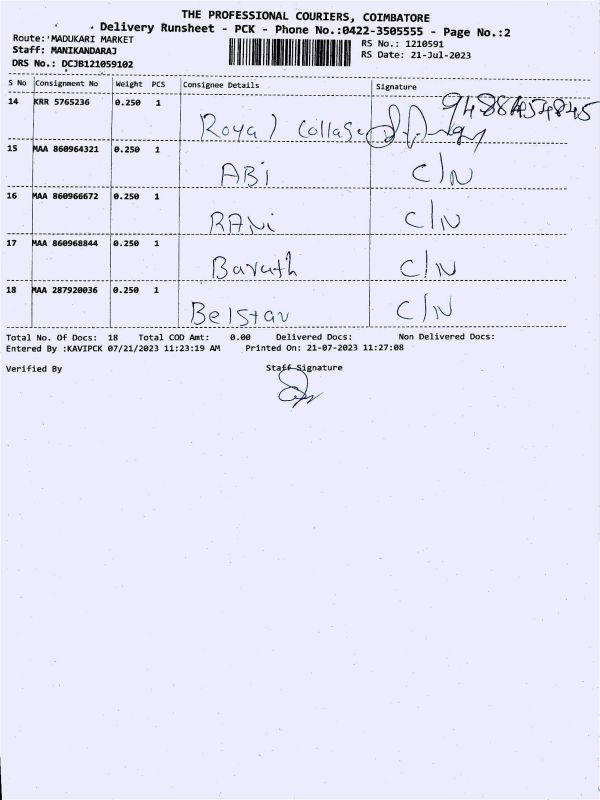 THE PROFESSIONAL COURIERS, COIMBATORE
Delivery Runsheet - PCK - Phone No.:0422-3505555 - Page No.:2
Route: MADUKARI MARKET
RS No.: 1210591
Staff: MANIKANDARAJ
RS Date: 21-Jul-2023
DRS No.: DCJB121059102
S No Consignment No Weight PCS Consignee Details Signature
14 KRR 5765236 0.250 1 Royal Collage
15 MAA 860964321 0.250 1 ABi C/N
16 MAA 860966672 0.250 1 RANi C/N
17 MAA 860968844 0.250 1 Barath C/N
18 MAA 287920036 0.250 1 Belstar C/N
Total No. Of Docs: 18 Total COD Amt: 0.00 Delivered Docs: Non Delivered Docs:
Entered By :KAVIPCK 07/21/2023 11:23:19 AM Printed On: 21-07-2023 11:27:08
Verified By Staff Signature